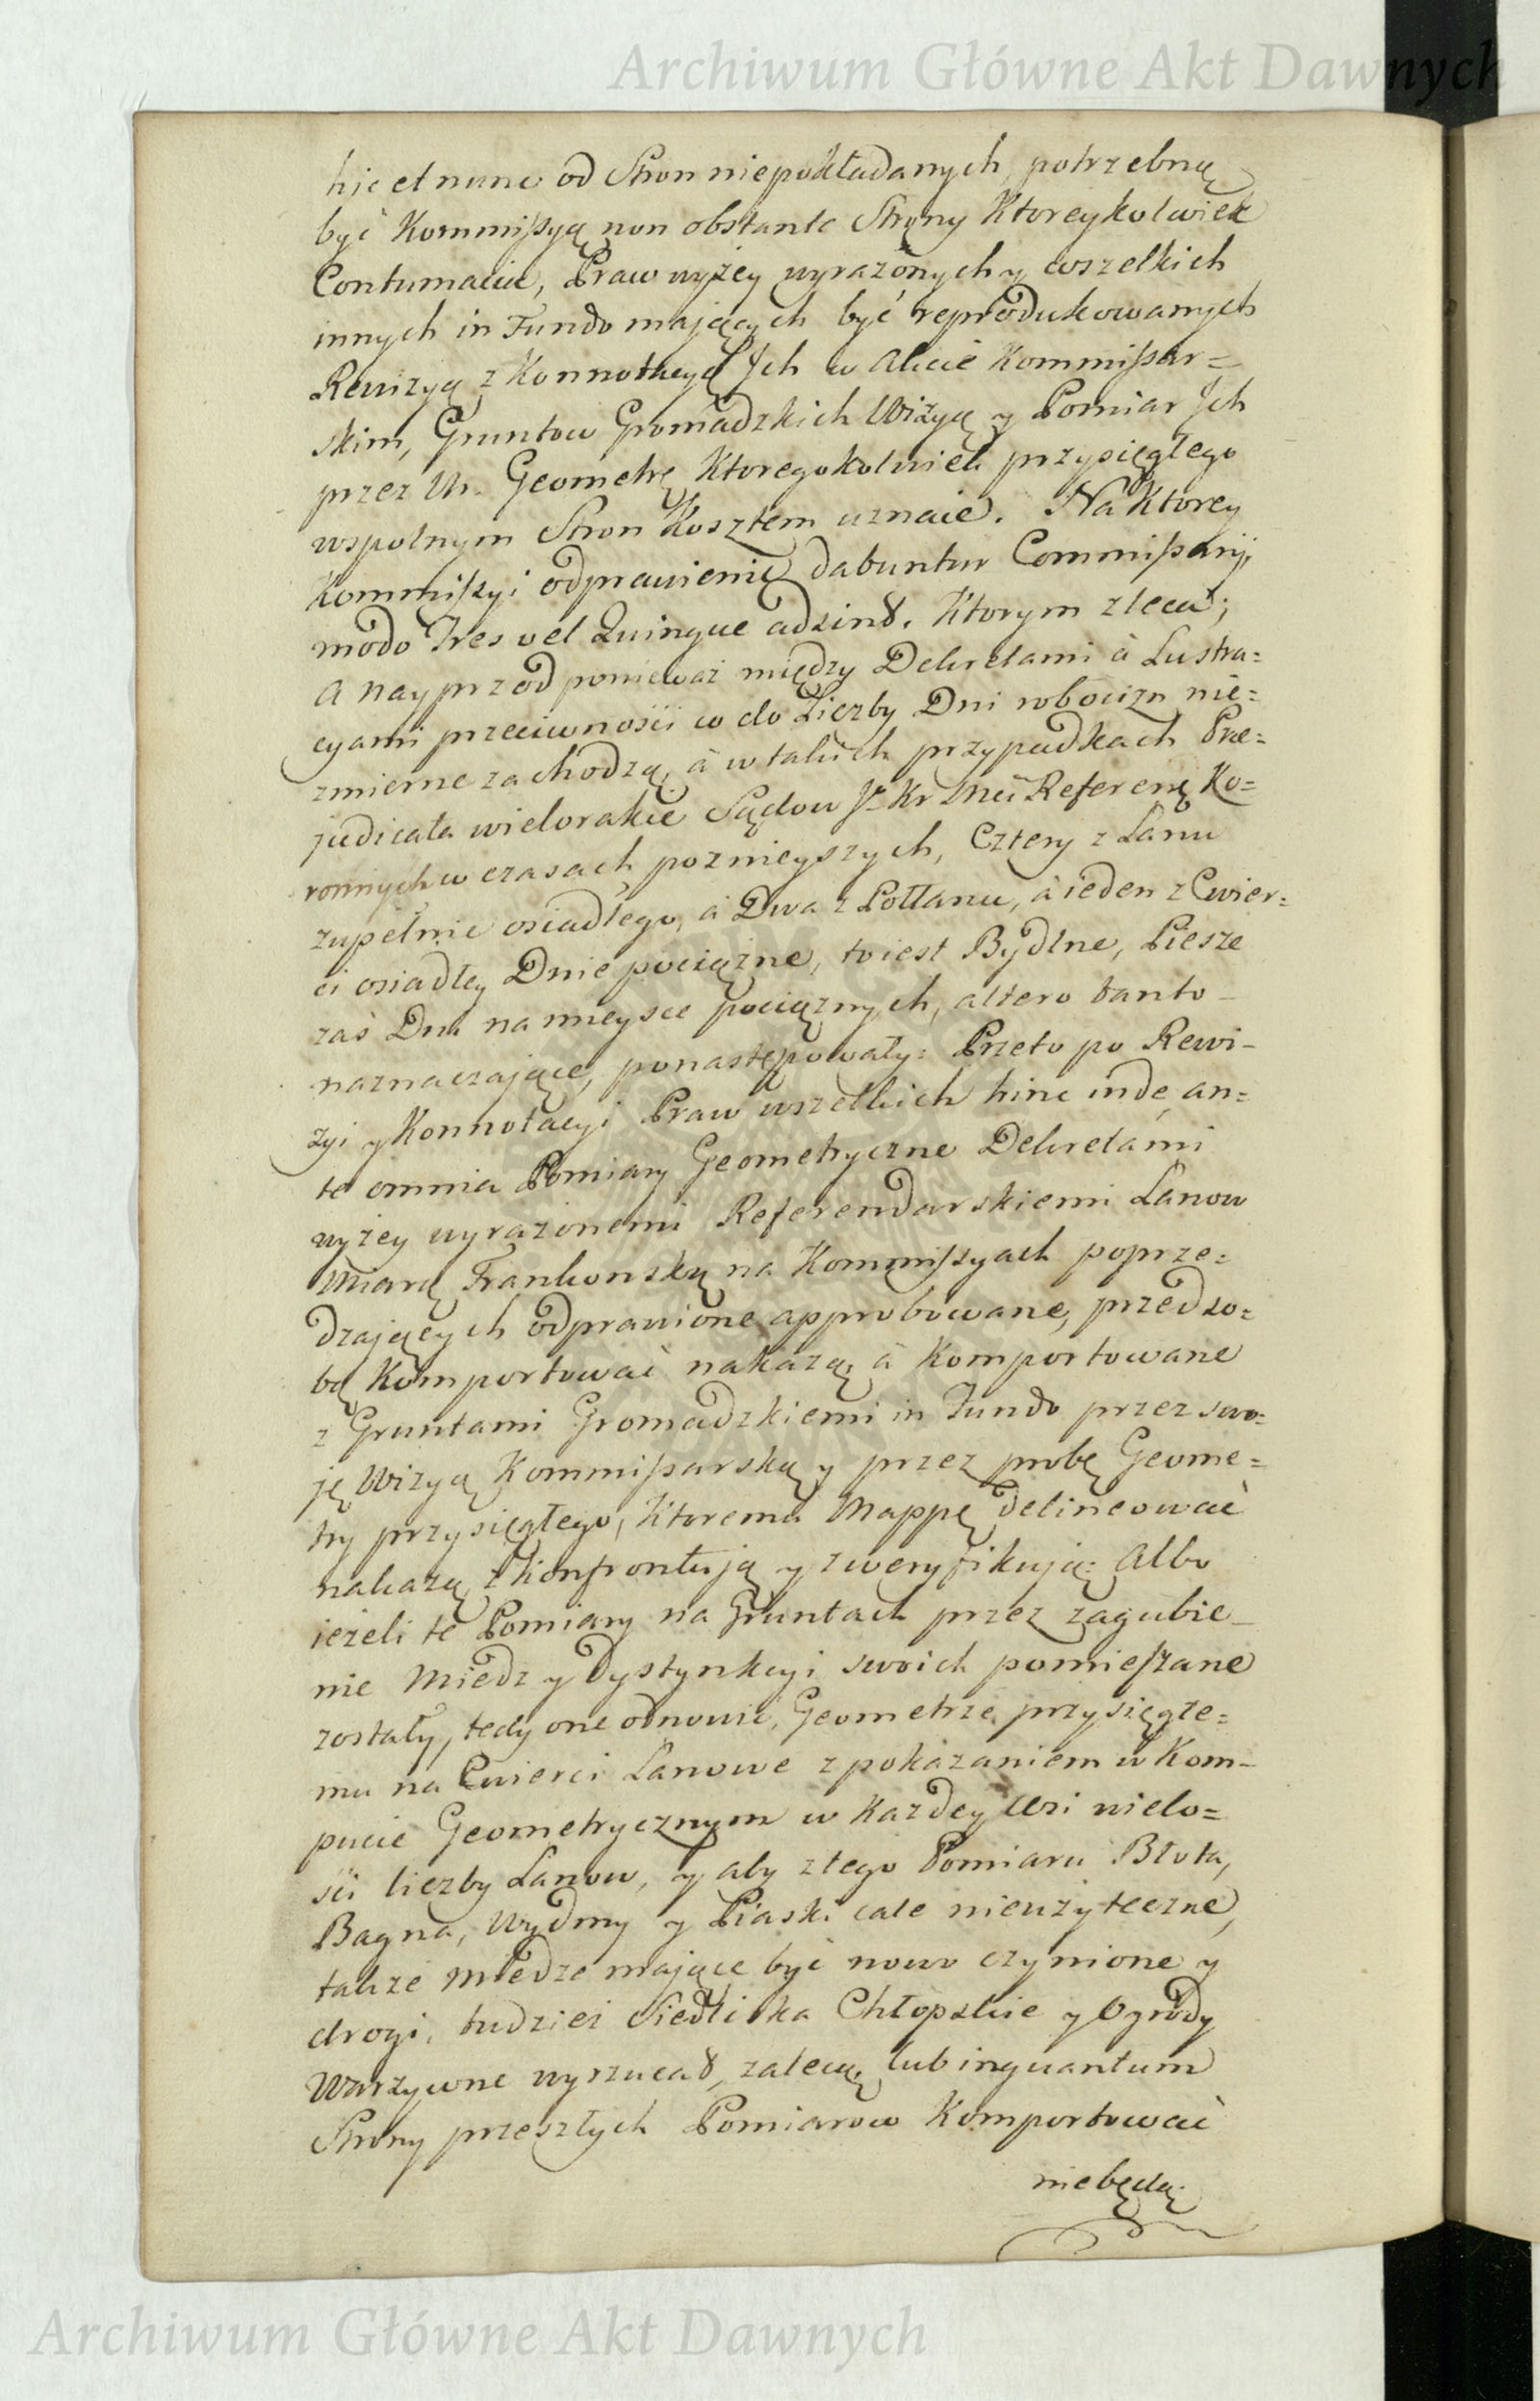 Archiwum Główne Akt Dawnych
hic et nunc od Stron niepokładanych, potrzebną
być Kommißyą non obstante Strony Ktoreykolwiek
Contumacia, Praw wyżey wyrażonych y wszelkich
innych in Fundo maiących być reprodukowanych
Rewizyą z Konnotacyą Jch w Akcie Kommißar=
skim, Gruntow Gromadzkich Wizyą y Pomiar Jch
przez Ur. Geometrę Ktoregokolwiek przysięgłego
wspolnym Stron Kosztem uznaie. Na Ktorey
Kommißyi odprawienie dabuntur Commißarij,
modo Tres vel Quinque adsint. Ktorym zleca;
A nayprzod ponieważ między Dekretami à Lustra=
cyami przeciwności co do Liczby Dni robocizn nie=
zmierne zachodzą, à w takich przypadkach Præ=
judicata wielorakie Sądow J. Kr Mci Referen. Ko=
ronnych w czasach poznieyszych, Cztery z Łanu
zupełnie osiadłego, à Dwa z Połłanu, à ieden z Cwier=
ci osiadłey Dnie pociążne, to iest Bydlne, Piesze
zaś Dni na mieysce pociążnych, altero tanto
naznaczaiące, ponastępowały: Przeto po Rewi-
zyi y Konnotacyi Praw wszelkich hinc inde, an=
te omnia Pomiary Geometryczne Dekretami
wyżey wyrażonemi Referendarskiemi Łanow
Miarą Frankonską na Kommißyach poprze=
dzaiących odprawione approbowane, przed so=
bą Komportować nakażą, à Komportowane
z Gruntami Gromadzkiemi in Fundo przez swo=
ję Wizyą Kommißarską y przez probę Geome=
try przysięgłego, Ktoremu Mappę delineować
nakażą, zkonfrontują y zweryfikują: Albo
ieżeli te Pomiary na Gruntach przez zagubie-
nie Miedz y Dystynkcyi swoich pomießzane
zostały, tedy one odnowić, Geometrze przysięgłe=
mu na Cwierci Łanowe z pokazaniem w Kom-
pucie Geometrycznym w każdey Wsi wielo=
ści liczby Łanow, y aby z tego Pomiaru Błota,
Bagna, Wydmy y Piaski cale nieużyteczne,
także Miedze maiące być nowo czynione y
drogi, tudzież Siedliska Chłopskie y Ogrody
Warzywne wyrzucał, zalecą, lub inquantum
Strony przeszłych Pomiarow Komportować
niebędą;
Archiwum Główne Akt Dawnych